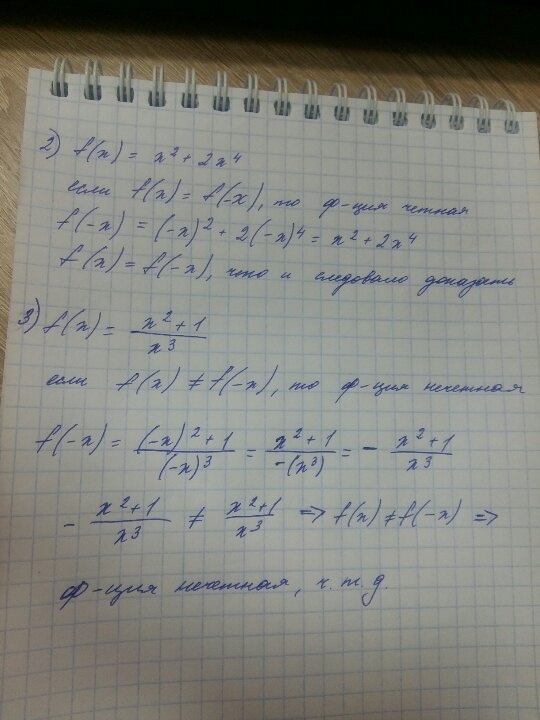 2) f(x) = x² + 2x⁴
если f(x) = f(-x), то ф-ция четная
f(-x) = (-x)² + 2(-x)⁴ = x² + 2x⁴
f(x) = f(-x), что и следовало доказать
3) f(x) = (x² + 1)/x³
если f(x) ≠ f(-x), то ф-ция нечетная
f(-x) = ((-x)² + 1)/(-x)³ = (x² + 1)/(-(x³)) = - (x² + 1)/x³
- (x² + 1)/x³ ≠ (x² + 1)/x³ => f(x) ≠ f(-x) =>
ф-ция нечетная, ч.т.д.